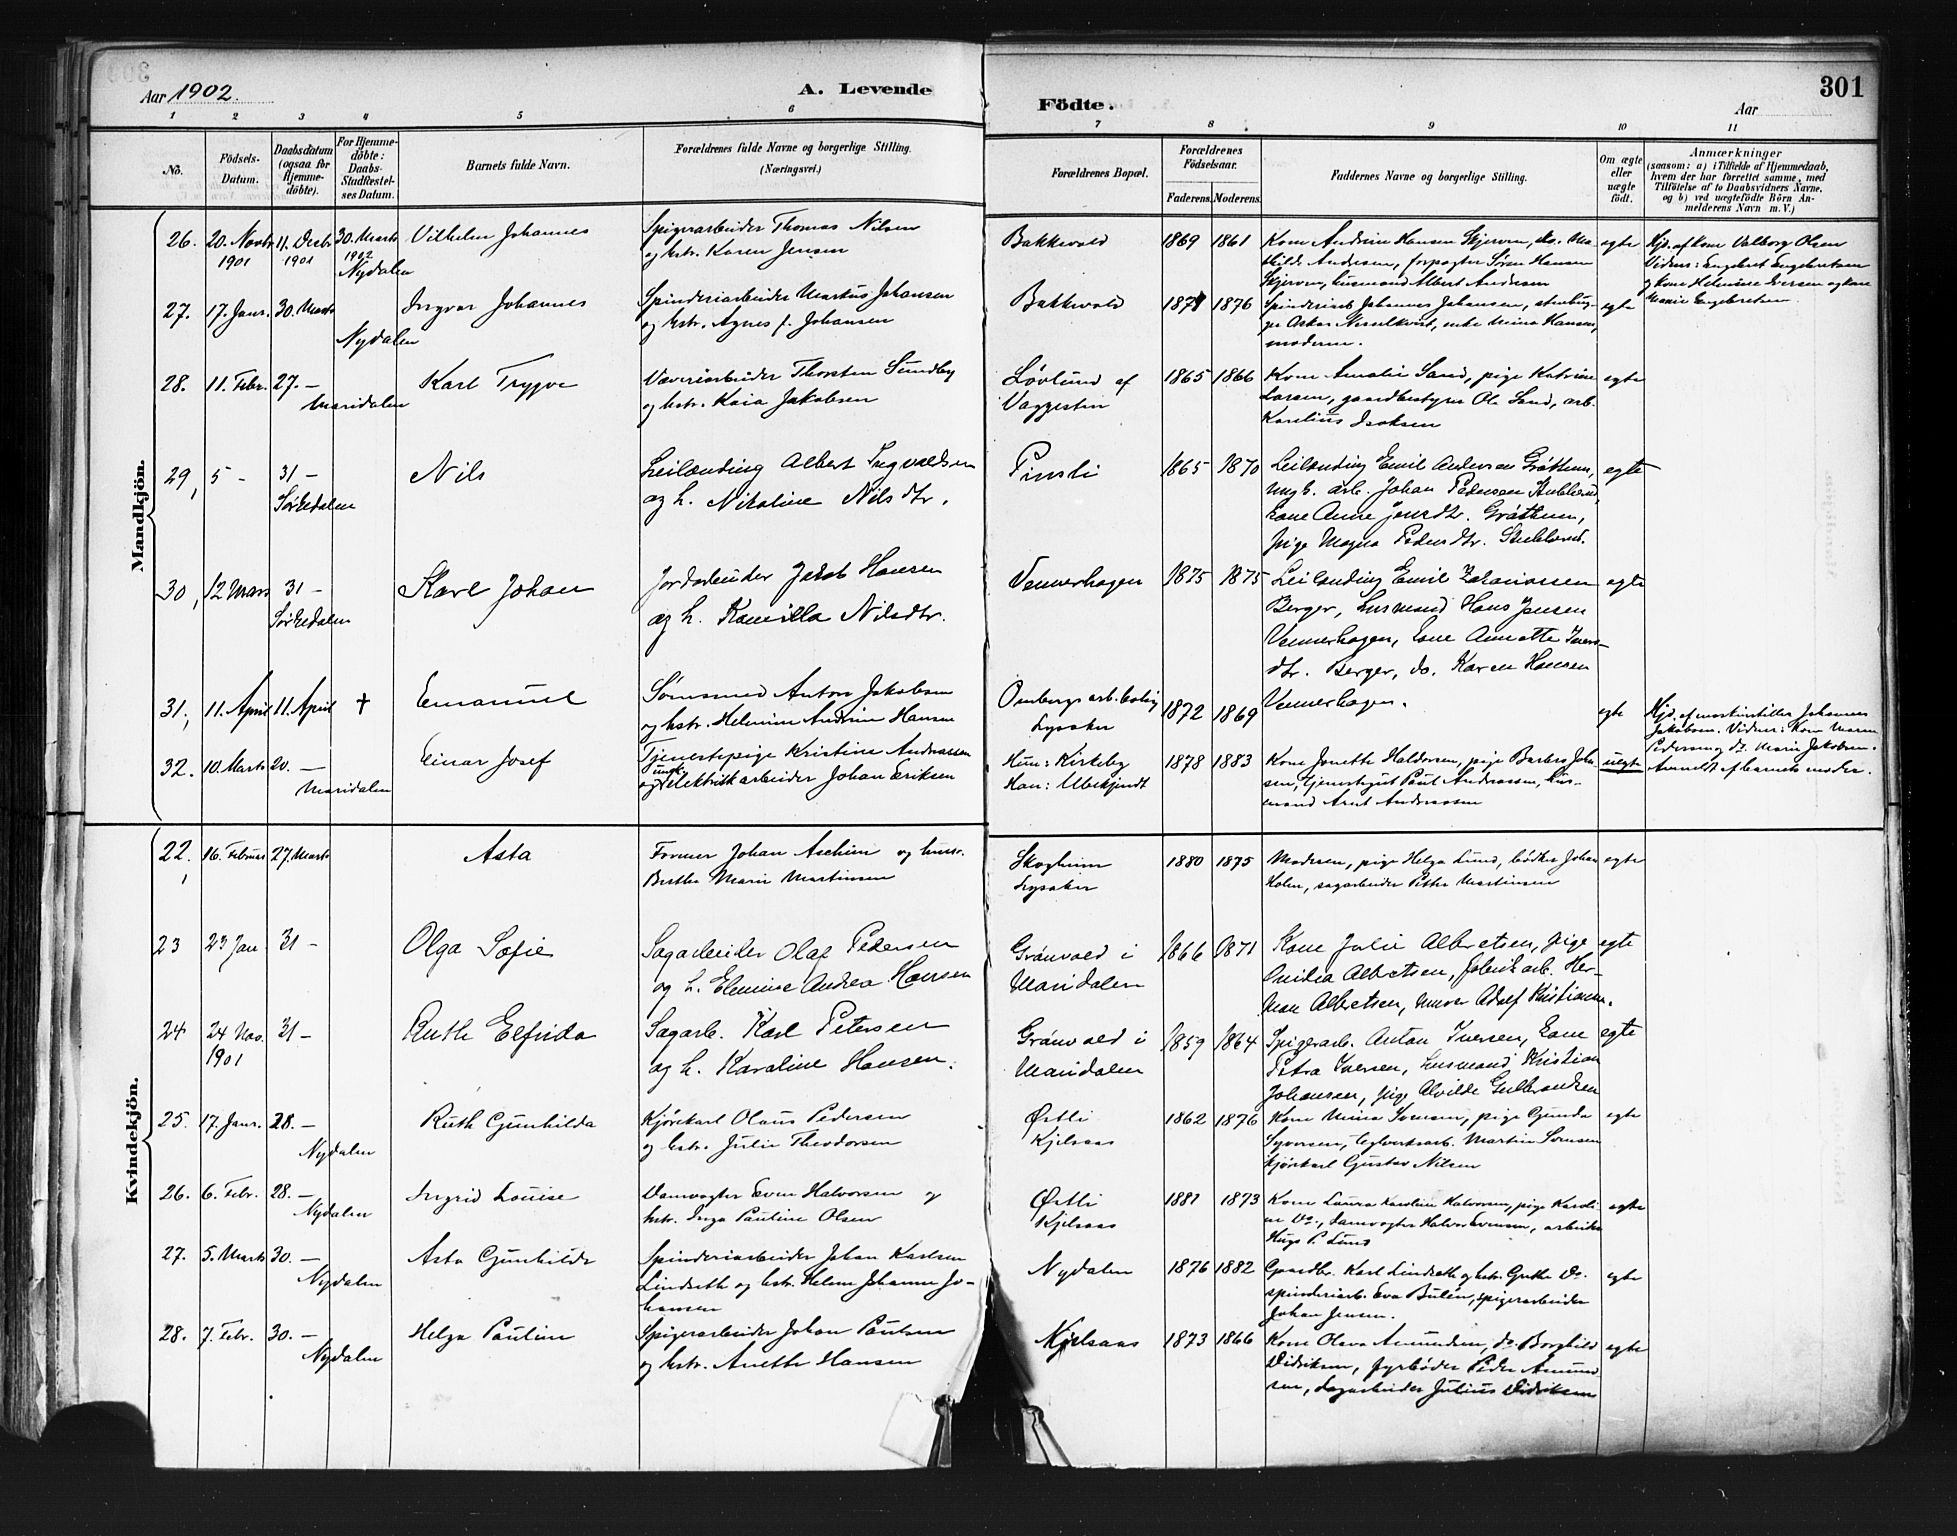 301
Aar 1902.
A. Levende
Födte.
Aar
1 2 3 4 5 6 7 8 9 10 11
No.
Födsels-
Datum.
Daabsdatum
(ogsaa for
Hjemme-
döbte).
For Hjemme-
döbte:
Daabs-
Stadfæstel-
ses Datum.
Barnets fulde Navn.
Forældrenes fulde Navne og borgerlige Stilling.
(Næringsvei.)
Forældrenes Bopæl.
Forældrenes
Födselsaar.
Faderens. Moderens.
Faddernes Navne og borgerlige Stilling.
Om ægte
eller
uægte
født.
Anmærkninger
(saasom: a) i Tilfælde af Hjemmedaab,
hvem der har forrettet samme, med
Tilföielse af to Daabsvidners Navne.
og b) ved uægtefödte Börn An-
melderens Navn m. V.)
Mandkjön.
26. 20. Novbr 1901 11. Decbr 1901 30. Marts 1902 Nydalen Vilhelm Johannes
Spigerarbeider Thomas Nilsen
og hstr. Karen Jensen
Bakkevold 1869 1861
Kone Andrine Hansen Skjerven, do. Ma-
thilde Andersen, forpagter Søren Hansen
Skjerven, husmand Albert Andersen
egte
Hjd. af Kone Valborg Olsen
Vidner: Engebret Engebretsen
og kone Helmine Iversen og kone
Marie Engebretsen.
27. 17. Janr. 30. Marts Nydalen Ingvar Johannes
Spinderiarbeider Markus Johansen
og hstr. Agnes f. Johansen
Bakkevold 1871 1876
Spinderiarb. Johannes Johansen,
Oskar Nesselkvist, enke Mina Hansen,
moderen.
egte
28. 11. Febr. 27. — Maridalen Karl Trygve
Væveriarbeider Thorsten Sundby
og hstr. Kaia Jakobsen
Løvlund af
Vaggestin
1865 1866
Kone Amalie Sand, pige Katrine
Larsen, gaardbestyrer Ole Sand, arb.
Karelius Isaksen
egte
29, 5 - 31 — Sørkedalen Nils
Leilænding Albert Ingvaldsen
og h. Nikoline Nilsdtr.
Pinsli 1865 1870
Leilænding Emil Andersen Gråttum,
ungk. arb. Johan Pedersen Stubberud,
kone Anne Jensdtr. Gråttum,
pige Magna Pedersdtr. Stubberud.
egte
30, 12 Mars 31 — Sørkedalen Karl Johan
Jordarbeider Jakob Hansen
og h. Kamilla Nilsdtr.
Vennerhagen 1875 1875
Leilænding Emil Johanessen
Berger, husmand Hans Jensen
Vennerhagen, kone Annette Ivers-
dtr. Berger, do. Karen Hansen
Vennerhagen.
egte
31, 11. April 11. April † Emanuel
Sømsmed Anton Jakobsen
og hstr. Helmine Andrine Hansen
Ombergs arb. bolig
Lysaker
1872 1869
egte
Hjd. af maskinstiller Johannes
Jakobsen. Vidner: Kone Maren
Pedersen og do. Marie Jakobsen.
32. 10. Marts 20. — Maridalen Einar Josef
Tjenestepige Kristine Andreassen
og ungk. elektriskarbeider Johan Eriksen
Hun: Kirkeby
Han: Ubekjendt
1878 1883
Kone Jonette Haldorsen, pige Barbro Johan-
sen, tjenestegut Paul Andreassen, hus-
mand Arnt Andreassen
uegte
Anmeldt af barnets moder.
Kvindekjön.
22, 16. Februar 27. Marts Asta
Former Johan Aschim og hustr.
Berthe Marie Martinsen
Skogheim
Lysaker
1880 1875
Moderen, pige Helga Lund, bødker Johan
Holm, sagarbeider Petter Martinsen
egte
23 23 Jan. 31 — Olga Sofie
Sagarbeider Olaf Pedersen
og h. Elemine Andrea Hansen
Grønvold i
Maridalen
1866 1871
Kone Julie Albretsen, pige
Albretsen, fabrikarb. Her-
man Albretsen, murer Adolf Kristiansen.
egte
24 24 Nov. 1901 31 — Ruth Elfrida
Sagarb. Karl Petersen
og h. Karoline Hansen.
Grønvold i
Maridalen
1859 1864
Spigerarb. Anton Iversen, kone
Petra Iversen, husmand Kristian
Johansen, pige Alvilde Gulbrandsen
egte
25. 17. Janr. 28. — Nydalen Ruth Gunhilda
Kjørekarl Olaus Pedersen
og hstr. Julie Theodorsen
Østli
Kjelsaas
1862 1876
Kone Mina Svensen, pige Gunda
Syversen, teglverksarb. Martin Svensen
kjørekarl Gustav Nilsen
egte
26. 6. Febr. 28. — Nydalen Ingrid Louise
Damvogter Even Halvorsen og
hstr. Inga Pauline Olsen
Østli
Kjelsaas
1881 1873
Kone Laura Karoline Halvorsen, pige Karoli-
ne Do., damvogter Halvor Evensen, arbeider
Hugo P. Lund
egte
27. 5. Marts 30. — Nydalen Asta Gunhilde
Spinderiarbeider Johan Karlsen
Lindseth og hstr. Helene Johanne Jo-
hansen
Nydalen 1876 1882
Gaardbr. Karl Lindseth og hstr. Grethe Do.
spinderiarb. Eva Bulén, spigerarbeider
Johan Jensen.
egte
28. 7. Febr. 30. — Nydalen Helga Pauline
Spigerarbeider Johan Paulsen
og hstr. Anette Hansen
Kjelsaas 1873 1866
Kone Olava Amundsen, do. Borghild
Didriksen, fyrbøder Peder Amund-
sen, dagarbeider Julius Didriksen
egte